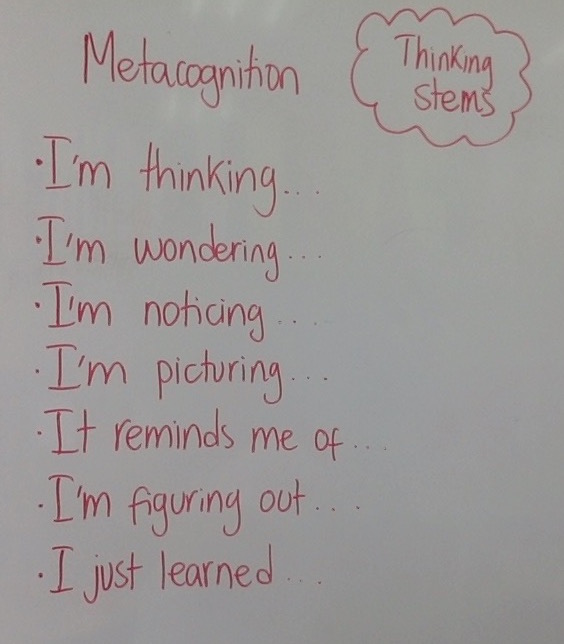 Metacognition
Thinking
stems
·I'm thinking...
·I'm wondering...
·I'm noticing...
·I'm picturing...
·It reminds me of...
·I'm figuring out...
·I just learned...